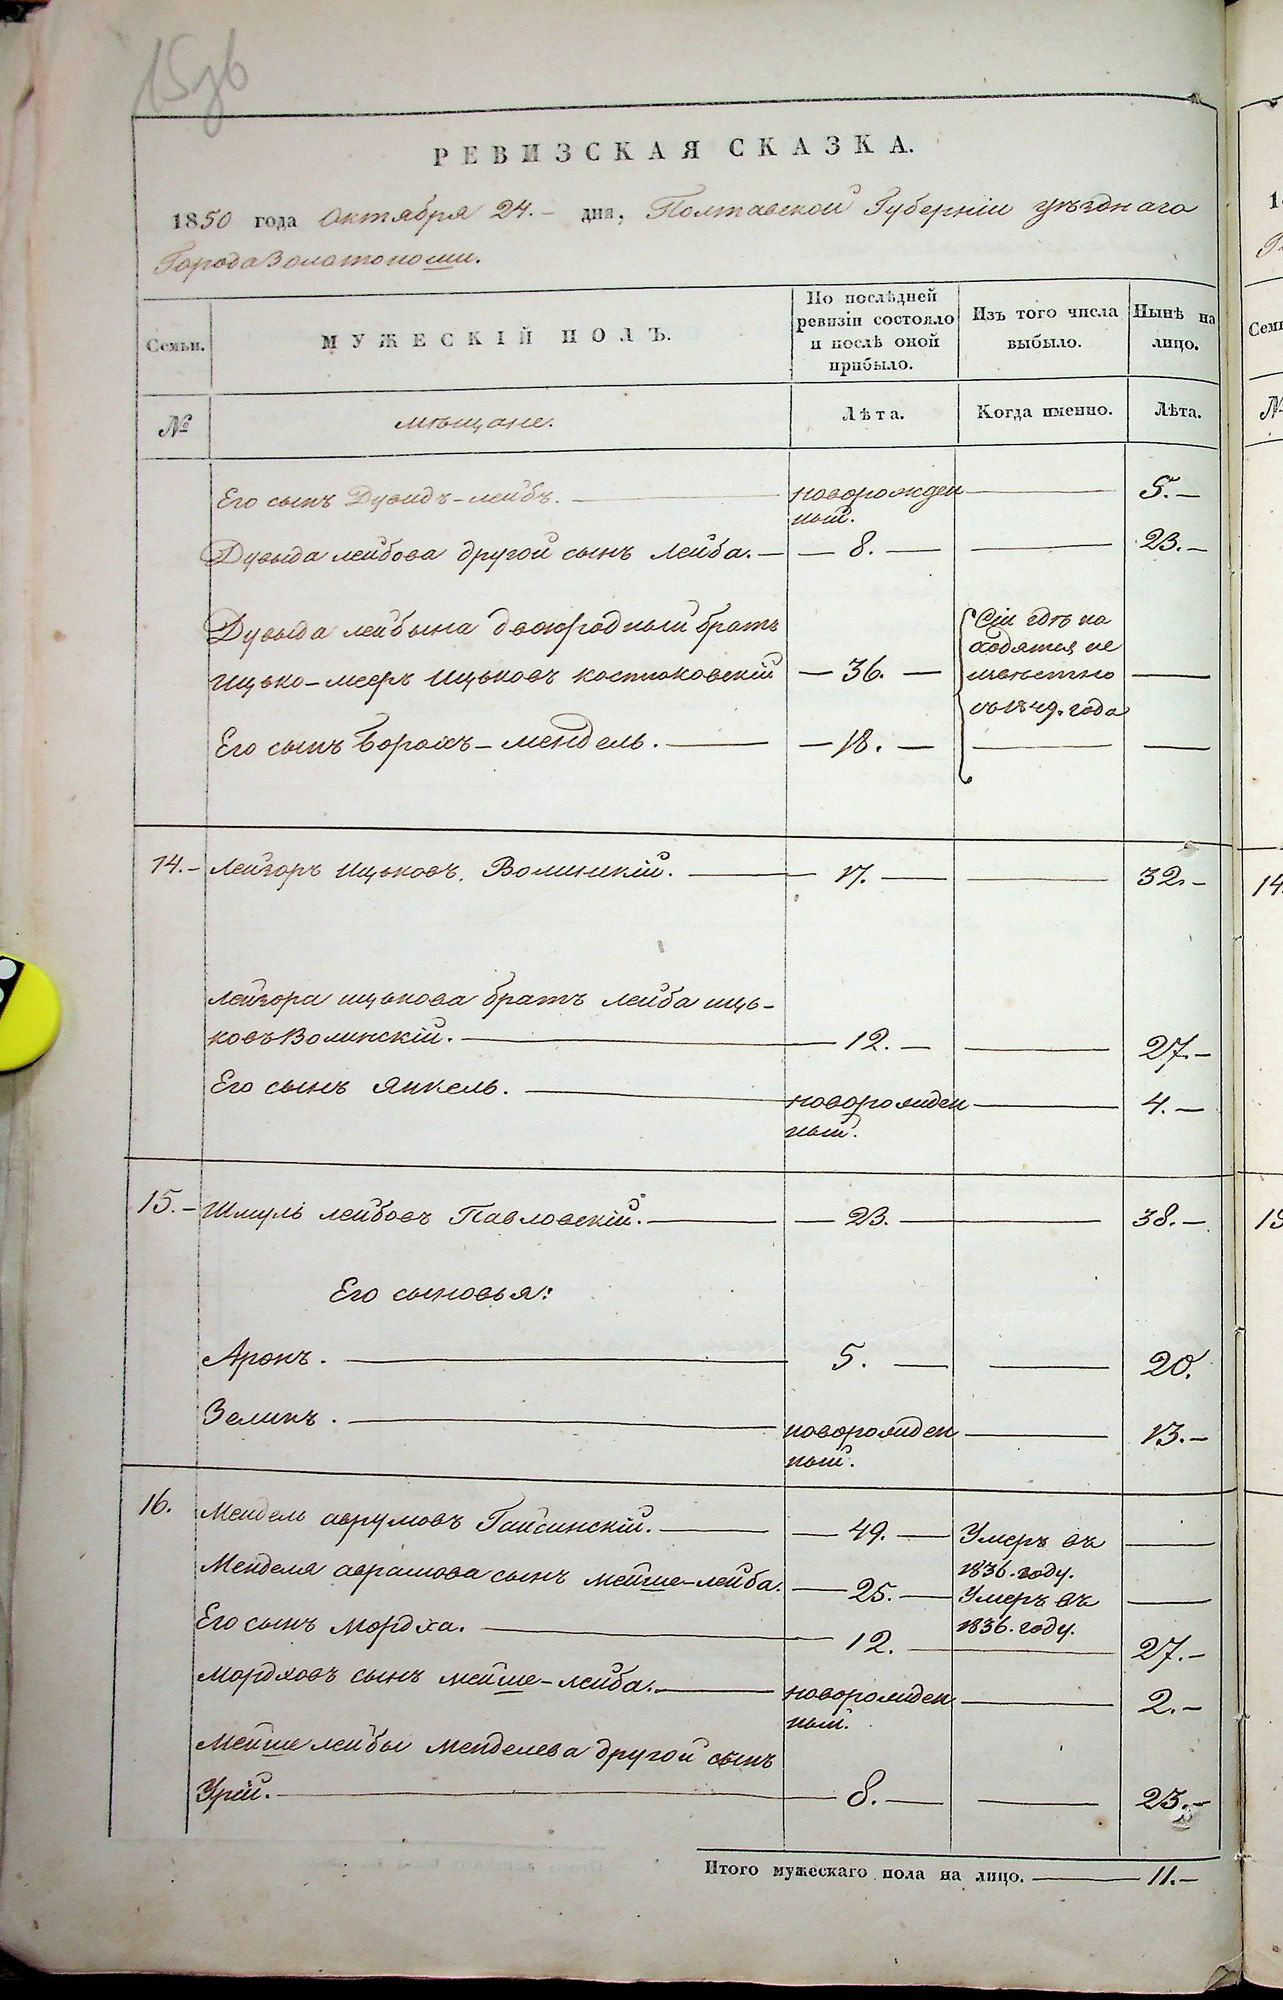 15зв
РЕВИЗСКАЯ СКАЗКА.
1850 года Октября 24.- дня, Полтавской Губерніи уѣзднаго
Города Золотоноши.
Семьи.
МУЖЕСКІЙ ПОЛЪ.
По послѣдней
ревизіи состояло
и послѣ оной
прибыло.
Изъ того числа
выбыло.
Нынѣ на
лицо.
№ мѣщане. Лѣта. Когда именно. Лѣта.
Его сынъ Дувидъ-лейбъ. новорожден 5.-
ный.
Дувыда лейбова другой сынъ Лейба. - 8. - 23.-
Дувыда лейбына двоюродный братъ
Ицько-мееръ Ицьковъ костюковскій - 36. -
Его сынъ Борохъ-мендель. - 18. -
Сіи гдѣ на
ходятся не
извѣстно
съ 1849. года
14.- Лейзоръ Ицьковъ Волинскій. 17. 32.-
лейзора ицькова братъ лейба иць-
ковъ Волинскій. 12. - 27.-
Его сынъ Янкель. новорожден 4.-
ный.
15.- Шмуль лейбовъ Павловскій. - 23. 38.-
Его сыновья:
Аронъ. 5. - 20.
Зеликъ. новорожден 13.-
ный.
16. Мендель аврумовъ Гайсинскій. - 49. - Умеръ въ
1836. году.
Менделя аврамова сынъ мейше-лейба. - 25. - Умеръ въ
1836. году.
Его сынъ мордха. 12. 27.-
мордховъ сынъ мейше-лейба. новорожден 2.-
ный.
мейше лейбы менделева другой сынъ
Урій. 8. - 23.-
Итого мужескаго пола на лицо. 11.-